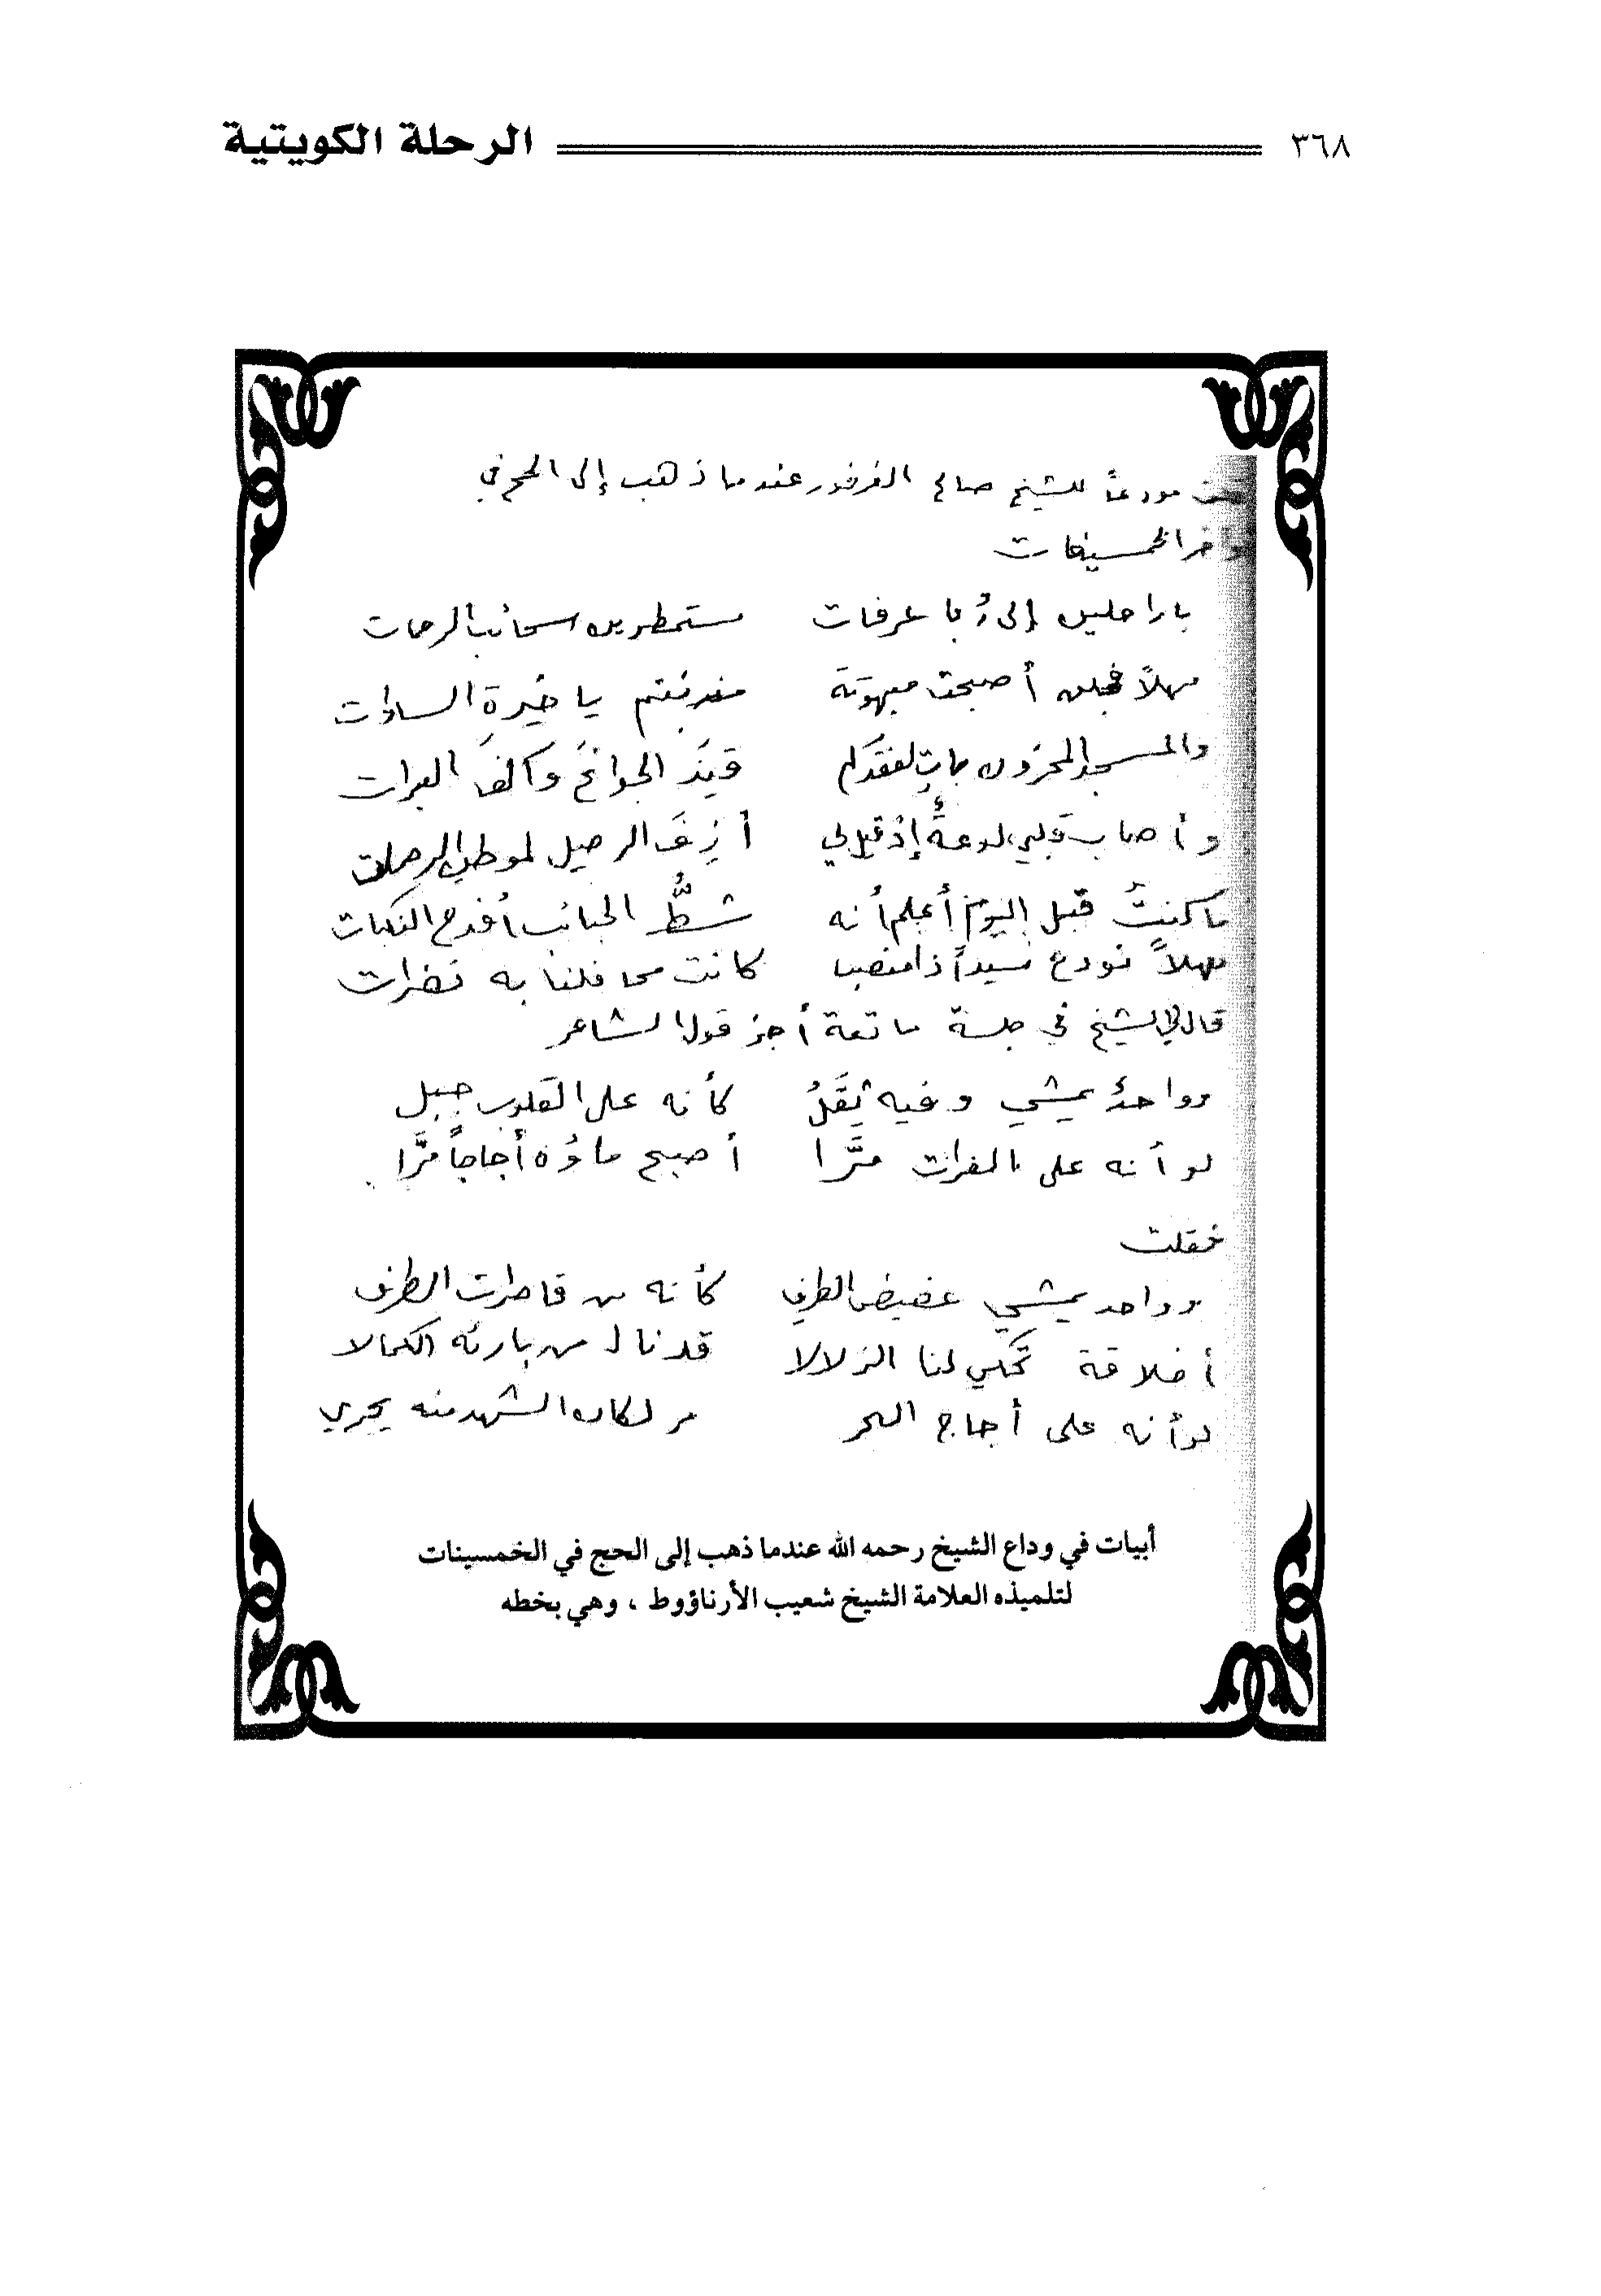 ٣٦٨ الرحلة الكويتية
مودعاً للشيخ صالح الفرفور عندما ذهب إلى الحج في
الخمسينات
يا راحلين إلى رُبا عرفات مستمطرين سحائب الرحمات
مهلاً أصبحت مبهوتة يا خيرة السادات
والمسجد المحزون بات لفقدكم الجوانح واكف العبرات
وأصاب قلبي لوعةٌ إذ قيل لي أزِفَ الرحيل لموطن الرحمات
ما كنتُ قبل اليوم أعلم أنه شطُّ الحبائب أفدح النكبات
مهلاً نودع سيداً ذا منصب كانت محافلنا به نضرات
قال لي الشيخ في جلسة ماتعة أجز قول الشاعر
وواحدٌ يمشي وفيه ثِقَلُ كأنه على القلوب جبل
لو أنه على الفرات مَرَّا أصبح ماؤه أجاجاً مرَّا
فقلت
وواحد يمشي غضيض الطرف كأنه من قاصرات الطرف
أخلاقه تحكي لنا الزلالا قد نال من بارئه الكمالا
لو أنه على أجاج البحر مر لكان الشهد منه يجري
أبيات في وداع الشيخ رحمه الله عندما ذهب إلى الحج في الخمسينات
لتلميذه العلامة الشيخ شعيب الأرناؤوط ، وهي بخطه